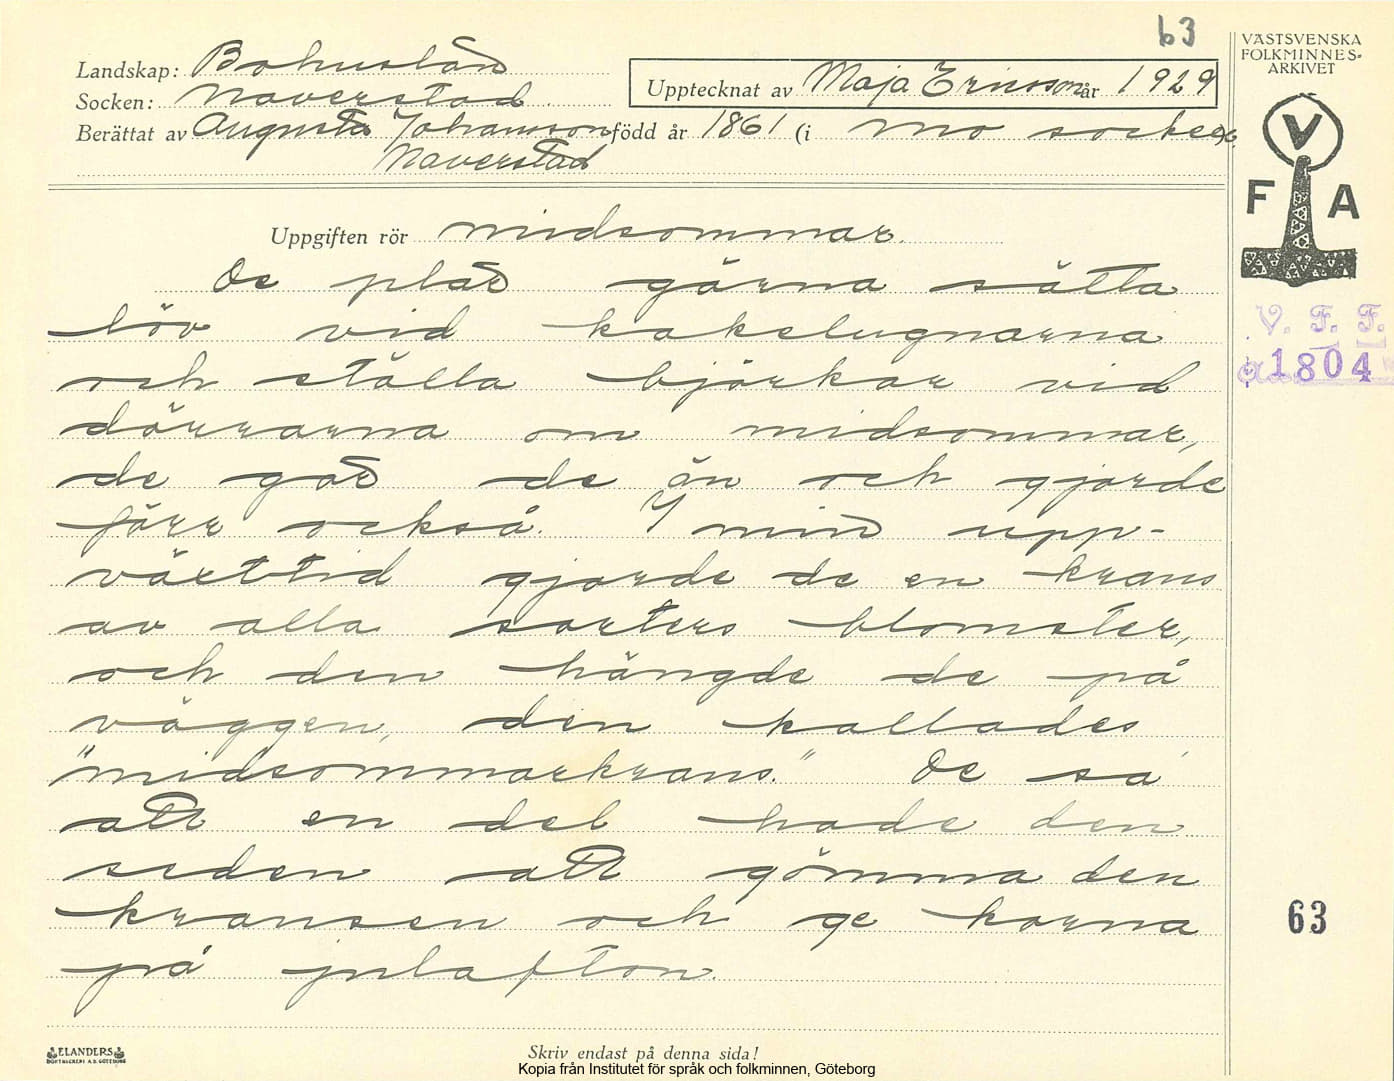 63
VÄSTSVENSKA
FOLKMINNES-
ARKIVET
Landskap: Bohuslän
Socken: Naverstad
Upptecknat av Maja Ericsson år 1929
Berättat av Augusta Johansson född år 1861 (i Mo socken
Naverstad
V
F A
Uppgiften rör midsommar.
De pläd gärna sätta
löv vid kakelugnarna
och ställa björkar vid
dörrarna om midsommar,
de gör de än och gjorde
förr också. I min upp-
växttid gjorde de en krans
av alla sorters blomster,
och den hängde de på
väggen, den kallades
"midsommarkrans." De sa
att en del hade den
seden att gömma den
kransen och ge korna
på julafton.
V. F. F.
1804
63
ELANDERS
BOKTRYCKERI A.B. GÖTEBORG
Skriv endast på denna sida!
Kopia från Institutet för språk och folkminnen, Göteborg